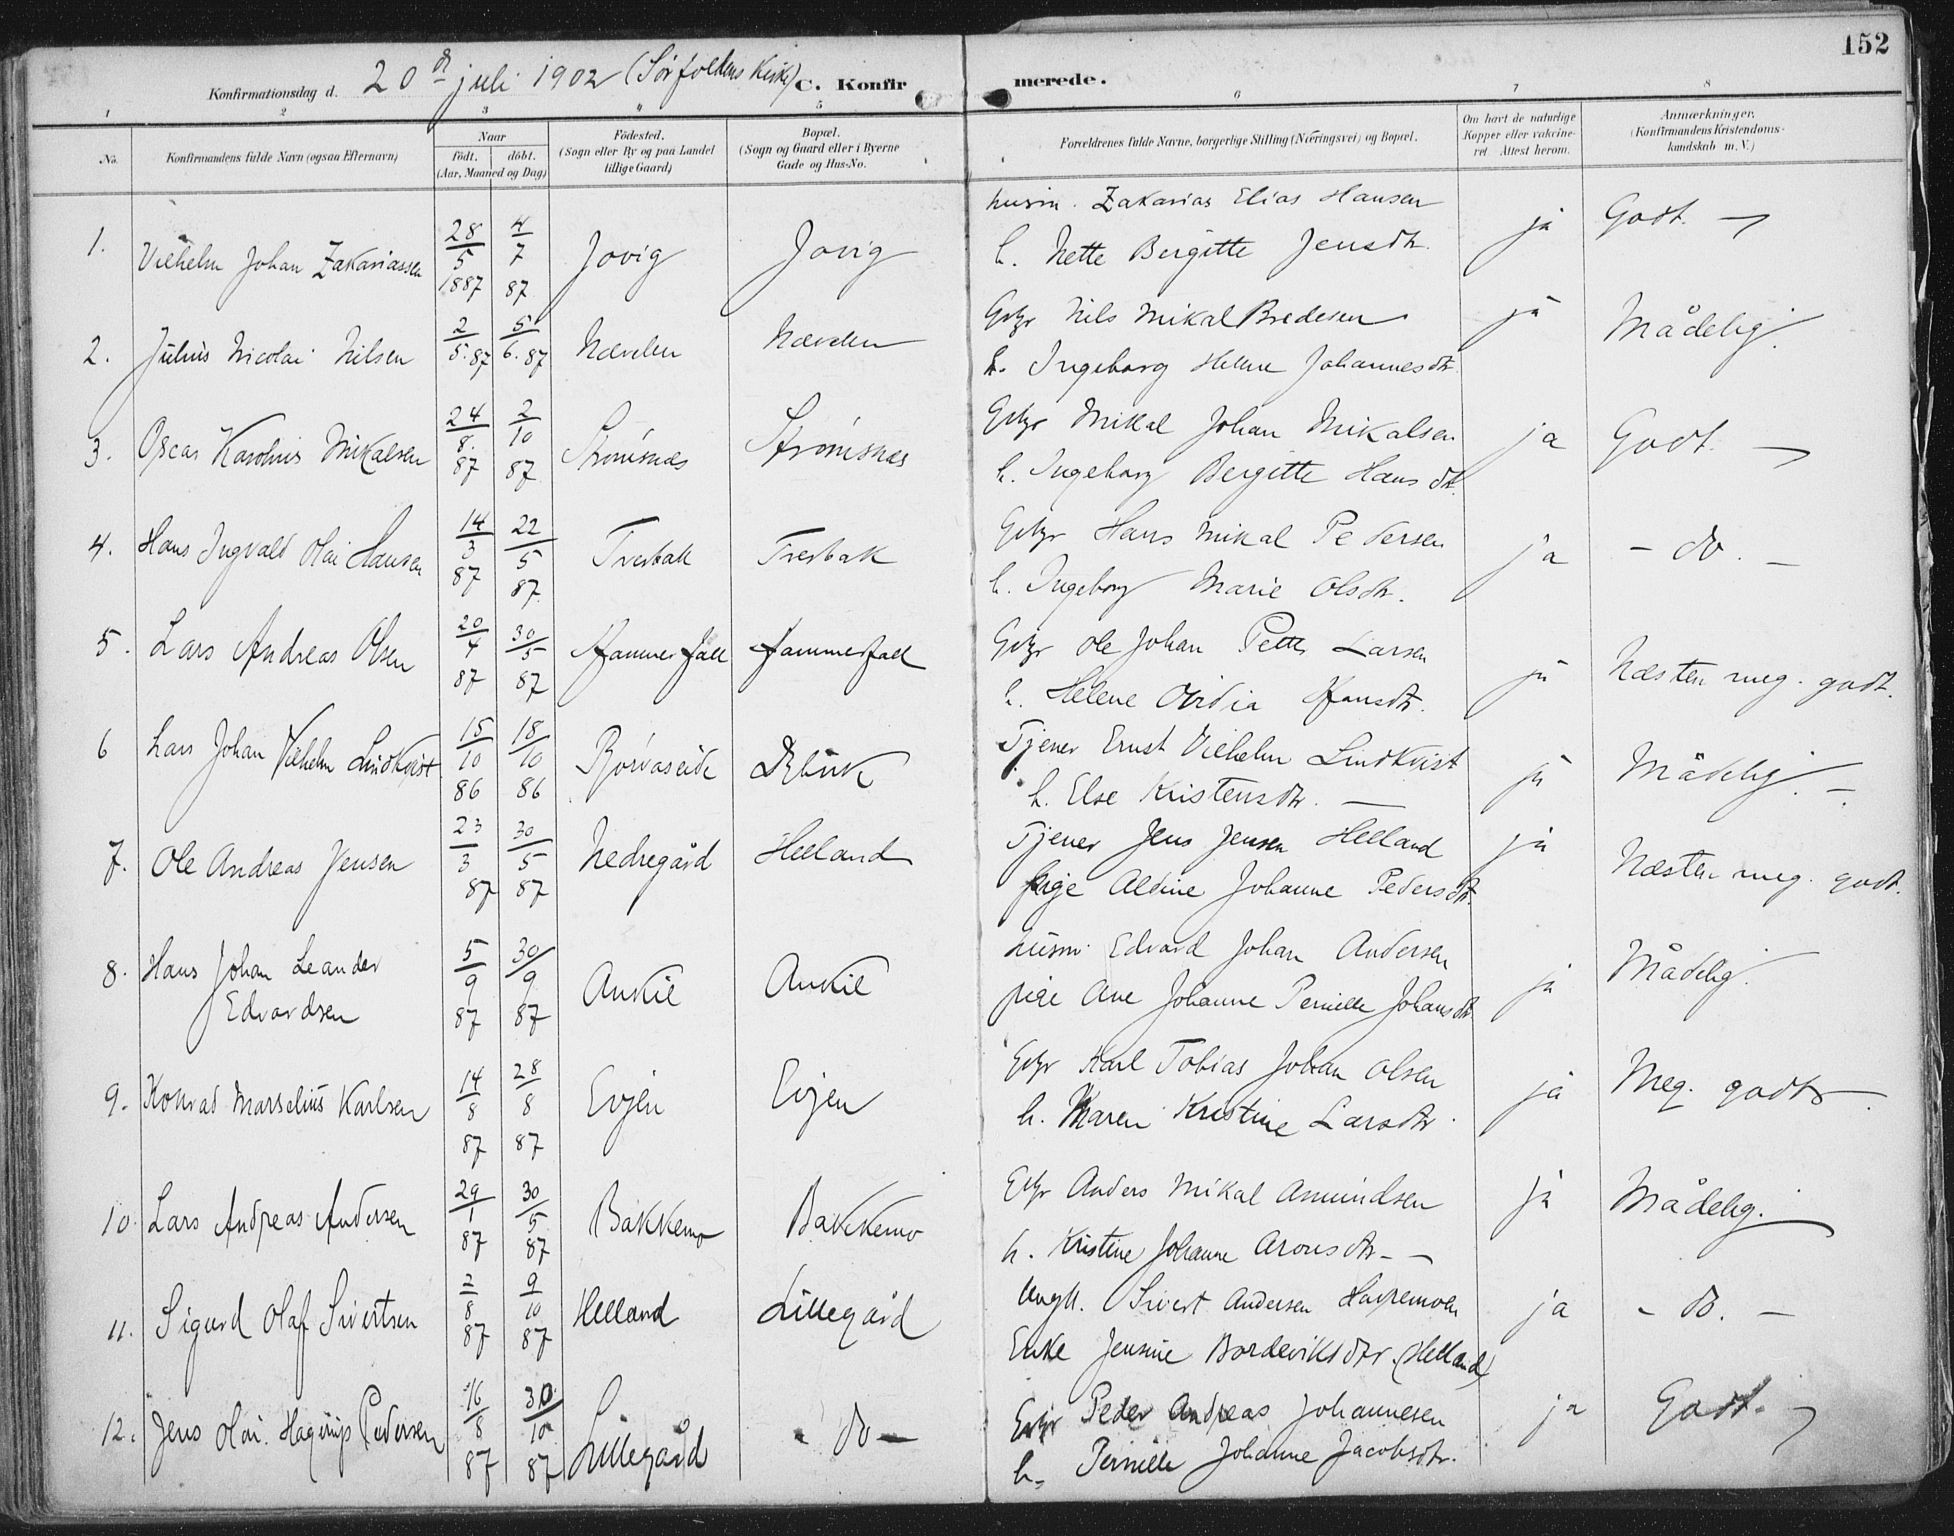 152
Konfirmationsdag d. 20de juli 1902 (Sørfoldens Kirke) C. Konfirmerede.
1 2 3 " 5 6 7 8
No. Konfirmandens fulde Navn (ogsaa Efternavn) Naar født. døbt. (Aar, Maaned og Dag) Fødested. (Sogn eller By og paa Landet tillige Gaard) Bopæl. (Sogn og Gaard eller i Byerne Gade og Hus-No. Forældrenes fulde Navne, borgerlige Stilling (Næringsvei) og Bopæl. Om havt de naturlige Kopper eller vakcineret. Attest herom. Anmærkninger. (Konfirmandens Kristendomskundskab m. V.)
1. Vilhelm Johan Zakariassen 28/5 1887 4/7 87 Jovig Jovig husm. Zakarias Elias Hansen ja Godt.
h. Nette Bergitte Jensdtr.
2. Julius Nicolai Nilsen 2/5.87 5/6.87 Nævelen Nævelen Gbr Nils Mikal Bredesen ja Mådelig.
h. Ingeborg Helene Johannesdtr.
3. Oscar Karolius Mikalsen 24/8. 87 2/10 87 Strømsnæs Strømsnæs Gbr Mikal Johan Mikalsen ja Godt.
h. Ingeborg Bergitte Hansdtr.
4. Hans Ingvald Olai Hansen 14/3 87 22/5 87. Tverbak Tverbak Gbr Hans Mikal Pedersen ja - do. -
h. Ingeborg Marie Olsdtr.
5. Lars Andreas Olsen 20/4 87 30/5 87 Hammerfall Hammerfall Gbr Ole Johan Petter Larsen ja Næsten meg. godt.
h. Helene Ovidia Hansdtr.
6 Lars Johan Vilhelm Lindkvist 15/10 86 18/10 86 Rørvaseide Tjener Ernst Vilhelm Lindkvist ja Mådelig. -
h. Else Kristensdtr. -
7. Ole Andreas Jensen 23/3 87 30/5 87 Nedregård Helland Tjener Jens Jensen Helland ja Næsten meg. godt.
pige Aldine Johanne Pedersdtr.
8. Hans Johan Leander Edvardsen 5/9 87 30/9 87 Aukil Aukil husm. Edvard Johan Andersen ja Mådelig.
pige Ane Johanne Pernille Johansdtr.
9. Konrad Marselius Karlsen 14/8 87 28/8 87 Evjen Evjen Gbr Karl Tobias Johan Olsen ja Meg. godt.
h. Maren Kristine Larsdtr.
10. Lars Andreas Andersen 29/1 87 30/5 87 Bakkemo Bakkemo Gbr Anders Mikal Amundsen ja Mådelig.
h. Kristine Johanne Aronsdtr. -
11. Sigurd Olaf Sivertsen 2/8 87 9/10 87 Helland Lillegård Ungk. Sivert Andersen ja - do. -
Enke Jensine Bordeviksdtr. (Helland)
12. Jens Olai Hagerup Pedersen 16/8 87 30/10 87 Lillegård - do - Gbr Peder Andreas Johannesen ja Godt.
h. Pernille Johanne Jacobsdtr.